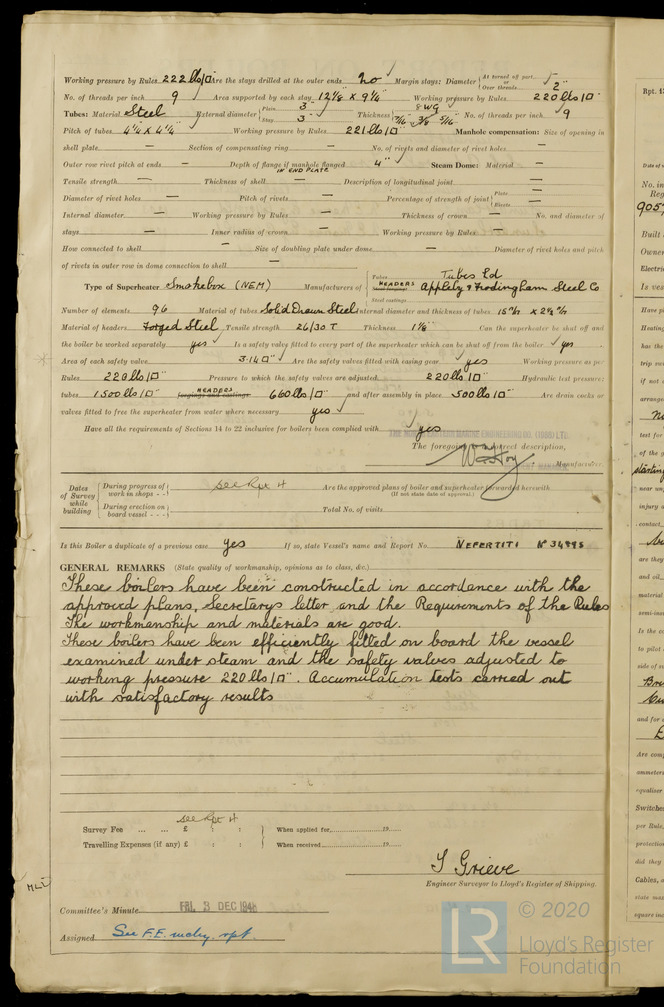 Working pressure by Rules 222 lbs/□" Are the stays drilled at the outer ends no Margin stays: Diameter { At turned off part, or Over threads 2"
No. of threads per inch 9 Area supported by each stay 12 1/8 × 9 1/4 " Working pressure by Rules 220 lbs/□"
Tubes: Material Steel External diameter { Plain 3" Stay 3" Thickness { 8 WG 5/16 3/8 5/16 No. of threads per inch 9
Pitch of tubes 4 1/4 × 4 1/4 " Working pressure by Rules 221 lbs/□" Manhole compensation: Size of opening in
shell plate — Section of compensating ring — No. of rivets and diameter of rivet holes —
Outer row rivet pitch at ends — Depth of flange if manhole flanged IN END PLATE 4" Steam Dome: Material —
Tensile strength — Thickness of shell — Description of longitudinal joint —
Diameter of rivet holes — Pitch of rivets — Percentage of strength of joint { Plate — Rivets —
Internal diameter — Working pressure by Rules — Thickness of crown — No. and diameter of
stays — Inner radius of crown — Working pressure by Rules —
How connected to shell — Size of doubling plate under dome — Diameter of rivet holes and pitch
of rivets in outer row in dome connection to shell —
Type of Superheater Smokebox (NEM) Manufacturers of { Tubes Tubes Ld
HEADERS Appleby & Frodingham Steel Co
Steel castings
Number of elements 96 Material of tubes Solid Drawn Steel Internal diameter and thickness of tubes
Material of headers Forged Steel Tensile strength 26/30 T Thickness 1 1/8" Can the superheater be shut off and
the boiler be worked separately yes Is a safety valve fitted to every part of the superheater which can be shut off from the boiler yes
Area of each safety valve 3.14□" Are the safety valves fitted with easing gear yes Working pressure as per
Rules 220 lbs/□" Pressure to which the safety valves are adjusted 220 lbs/□" Hydraulic test pressure:
tubes 1500 lbs/□" HEADERS forgings and castings 660 lbs/□" and after assembly in place 500 lbs/□" Are drain cocks or
valves fitted to free the superheater from water where necessary yes
Have all the requirements of Sections 14 to 22 inclusive for boilers been complied with yes
THE NORTH EASTERN MARINE ENGINEERING CO. (1938) LTD.
The foregoing is a correct description,
Manufacturer.
Dates of Survey while building { During progress of work in shops - - See Rpt 4 Are the approved plans of boiler and superheater forwarded herewith
(If not state date of approval.)
During erection on board vessel - - - Total No. of visits
Is this Boiler a duplicate of a previous case yes If so, state Vessel's name and Report No. NEFERTITI Nº 34995
GENERAL REMARKS (State quality of workmanship, opinions as to class, &c.)
These boilers have been constructed in accordance with the
approved plans, Secretarys letter and the Requirements of the Rules
The workmanship and materials are good.
These boilers have been efficiently fitted on board the vessel
examined under steam and the safety valves adjusted to
working pressure 220 lbs/□". Accumulation tests carried out
with satisfactory results
See Rpt 4
Survey Fee ... ... £ : : } When applied for 19
Travelling Expenses (if any) £ : : } When received 19
T Grieve
Engineer Surveyor to Lloyd's Register of Shipping.
Committee's Minute FRI. 3 DEC 1948
Assigned See F.E. mchy. rpt.
LR © 2020
Lloyd's Register
Foundation